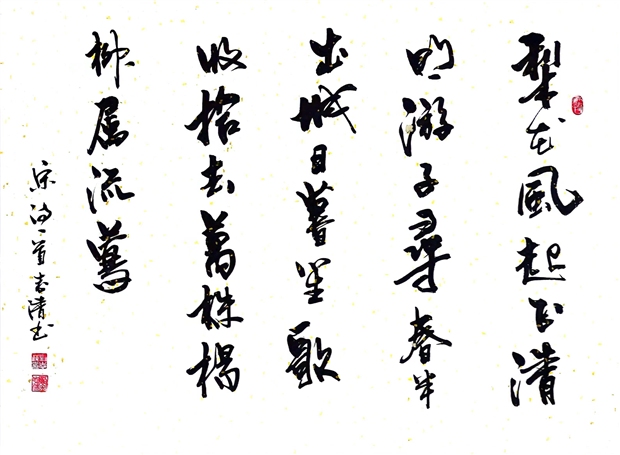 梨花風起正清
明游子尋春半
出城日暮笙歌
收拾去萬株楊
柳属流鶯
宋诗一首清书